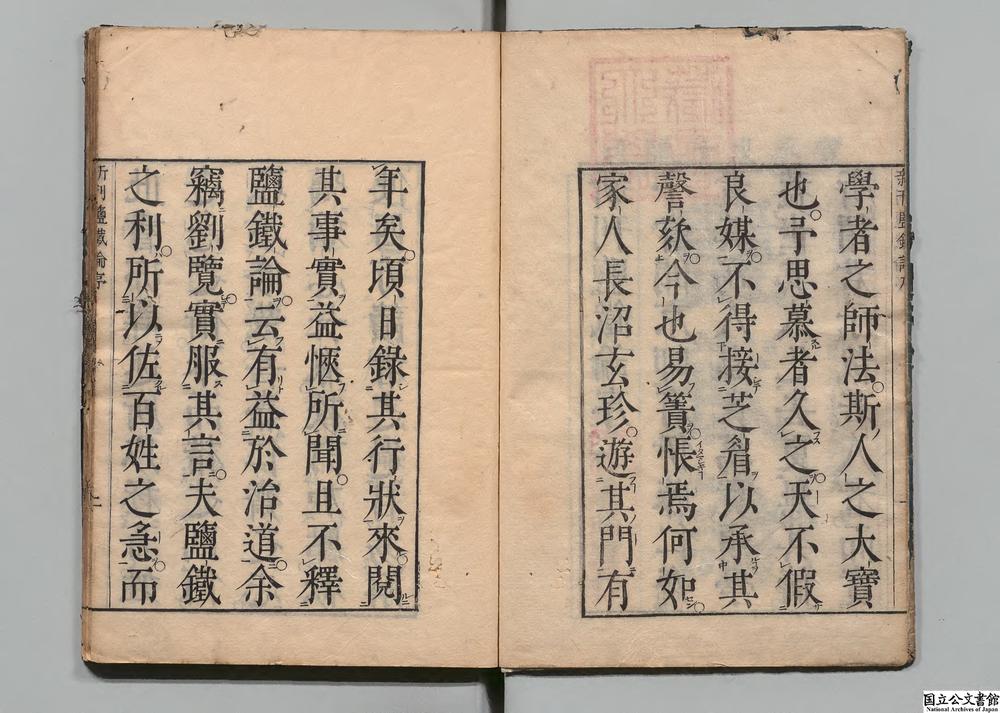 學者之師法斯人之大寶
也予思慕者久之天不假
良媒不得接芝眉以承其
謦欬今也易簀悵焉何如
家人長沼玄珍遊其門有
年矣頃日錄其行狀來閱
其事實益愜所聞且不釋
鹽鐵論云有益於治道余
竊劉覽實服其言夫鹽鐵
之利所以佐百姓之急而
新刊鹽鐵論序
國立公文書館
National Archives of Japan